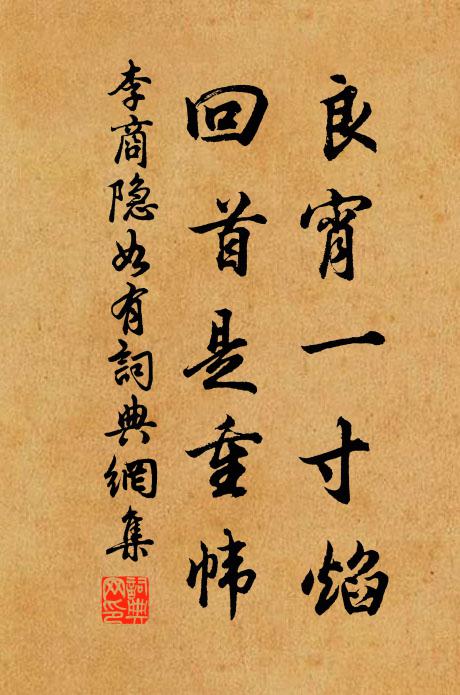 良宵一寸焰
回首是重帏
李商隐如有詞典網集
詞典网印